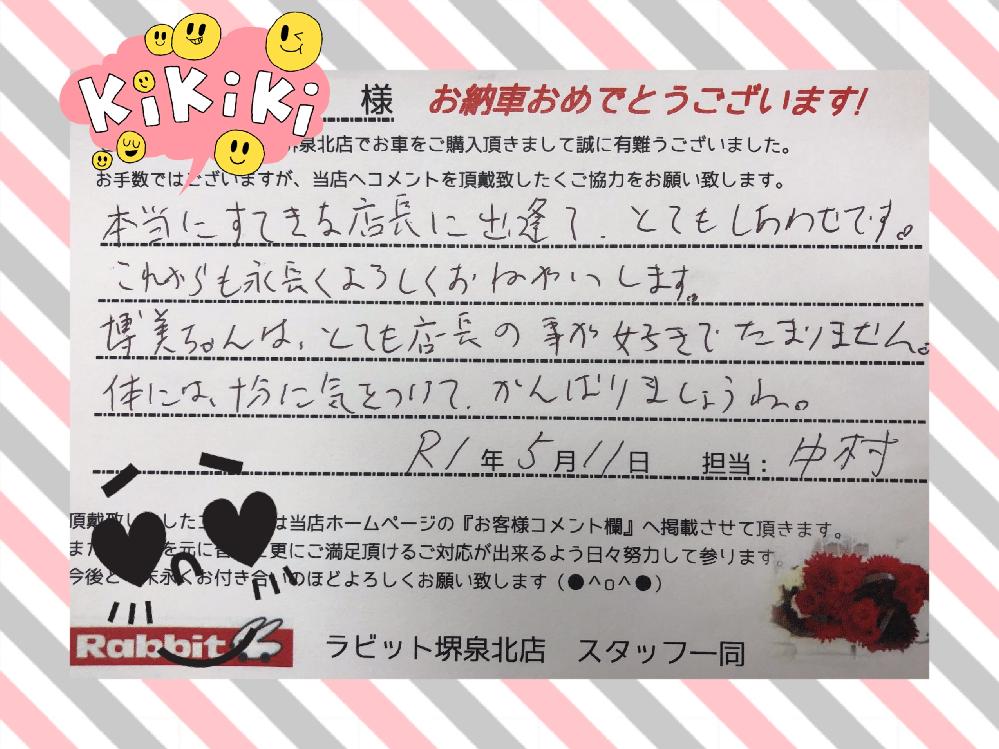 KiKiKi
様 お納車おめでとうございます!
堺泉北店でお車をご購入頂きまして誠に有難うございました。
お手数ではございますが、当店へコメントを頂戴致したくご協力をお願い致します。
本当にすてきな店長に出逢て、とてもしあわせです。
これからも永長くよろしくおねがいします。
博美ちゃんは、とても店長の事が好きでたまりません。
体には、十分に気をつけて、がんばりましょうね。
R1年5月11日 担当:中村
頂戴致し した は当店ホームページの『お客様コメント欄』へ掲載させて頂きます。
また を元に 更にご満足頂けるご対応が出来るよう日々努力して参ります。
今後と 末永くお付き合いのほどよろしくお願い致します(●^o^●)
Rabbit ラビット堺泉北店 スタッフ一同